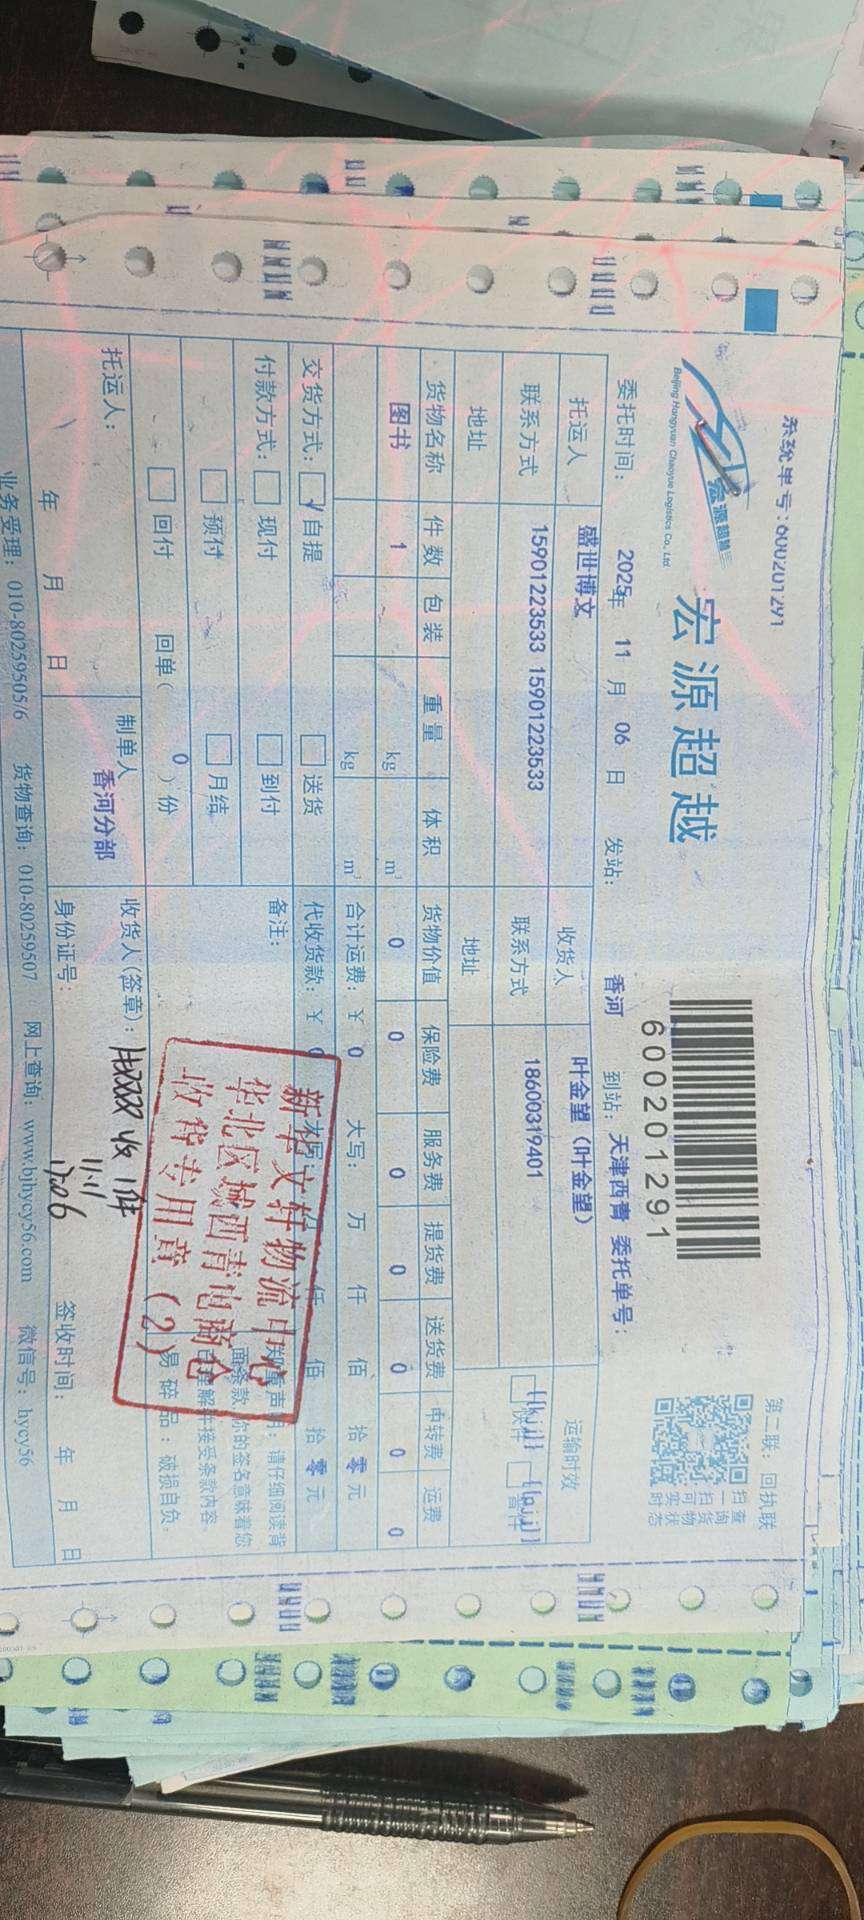 系统单号:600201291
第二联:回执联
宏源超越
Beijing Hongyuan Chaoyue Logistics Co., Ltd
宏源超越
600201291
扫一扫可实时
查询货物状态
委托时间: 2025年 11 月 06 日 发站: 香河 到站: 天津西青 委托单号:
托运人 盛世博文 收货人 叶金望(叶金望) 运输时效
联系方式 15901223533 15901223533 联系方式 18600319401
地址 地址
货物名称 件数 包装 重量 体积 货物价值 保险费 服务费 提货费 送货费 中转费 运费
图书 1 kg m³ 0 0 0 0 0 0 0
kg m³ 合计运费: ¥ 0 大写: 万 仟 佰 拾 零 元
交货方式: √ 自提 送货 代收货款: ¥ 0 仟 佰 拾 零 元
付款方式: 现付 到付 备注:
预付 月结
回付 回单( 0 )份
郑重声明: 请仔细阅读背
面条款 你的签名意味着您
已理解并接受条款内容
易碎品: 破损自负
新华文轩物流中心
华北区域西青电商仓
收货专用章(2)
托运人: 制单人 香河分部 收货人(签章): 收1件
11.11
年 月 日 身份证号: 签收时间: 年 月 日
业务受理: 010-80259505/6 货物查询: 010-80259507 网上查询: www.bjhycy56.com 微信号: hycy56